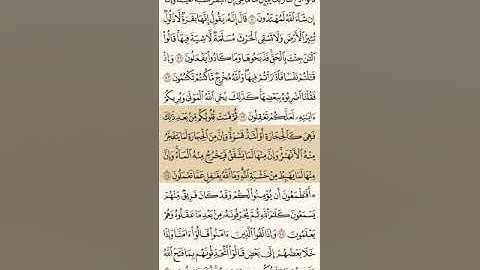 إِن شَآءَ ٱللَّهُ لَمُهۡتَدُونَ ٧٠ قَالَ إِنَّهُۥ يَقُولُ إِنَّهَا بَقَرَةٞ لَّا ذَلُولٞ
تُثِيرُ ٱلۡأَرۡضَ وَلَا تَسۡقِي ٱلۡحَرۡثَ مُسَلَّمَةٞ لَّا شِيَةَ فِيهَاۚ قَالُواْ
ٱلۡـَٰٔنَ جِئۡتَ بِٱلۡحَقِّۚ فَذَبَحُوهَا وَمَا كَادُواْ يَفۡعَلُونَ ٧١ وَإِذۡ
قَتَلۡتُمۡ نَفۡسٗا فَٱدَّٰرَٰٔتُمۡ فِيهَاۖ وَٱللَّهُ مُخۡرِجٞ مَّا كُنتُمۡ تَكۡتُمُونَ ٧٢
فَقُلۡنَا ٱضۡرِبُوهُ بِبَعۡضِهَاۚ كَذَٰلِكَ يُحۡيِ ٱللَّهُ ٱلۡمَوۡتَىٰ وَيُرِيكُمۡ
ءَايَٰتِهِۦ لَعَلَّكُمۡ تَعۡقِلُونَ ٧٣ ثُمَّ قَسَتۡ قُلُوبُكُم مِّنۢ بَعۡدِ ذَٰلِكَ
فَهِيَ كَٱلۡحِجَارَةِ أَوۡ أَشَدُّ قَسۡوَةٗۚ وَإِنَّ مِنَ ٱلۡحِجَارَةِ لَمَا يَتَفَجَّرُ
مِنۡهُ ٱلۡأَنۡهَٰرُۚ وَإِنَّ مِنۡهَا لَمَا يَشَّقَّقُ فَيَخۡرُجُ مِنۡهُ ٱلۡمَآءُۚ وَإِنَّ
مِنۡهَا لَمَا يَهۡبِطُ مِنۡ خَشۡيَةِ ٱللَّهِۗ وَمَا ٱللَّهُ بِغَٰفِلٍ عَمَّا تَعۡمَلُونَ ٧٤
۞ أَفَتَطۡمَعُونَ أَن يُؤۡمِنُواْ لَكُمۡ وَقَدۡ كَانَ فَرِيقٞ مِّنۡهُمۡ
يَسۡمَعُونَ كَلَٰمَ ٱللَّهِ ثُمَّ يُحَرِّفُونَهُۥ مِنۢ بَعۡدِ مَا عَقَلُوهُ وَهُمۡ
يَعۡلَمُونَ ٧٥ وَإِذَا لَقُواْ ٱلَّذِينَ ءَامَنُواْ قَالُوٓاْ ءَامَنَّا وَإِذَا
خَلَا بَعۡضُهُمۡ إِلَىٰ بَعۡضٖ قَالُوٓاْ أَتُحَدِّثُونَهُم بِمَا فَتَحَ ٱللَّهُ